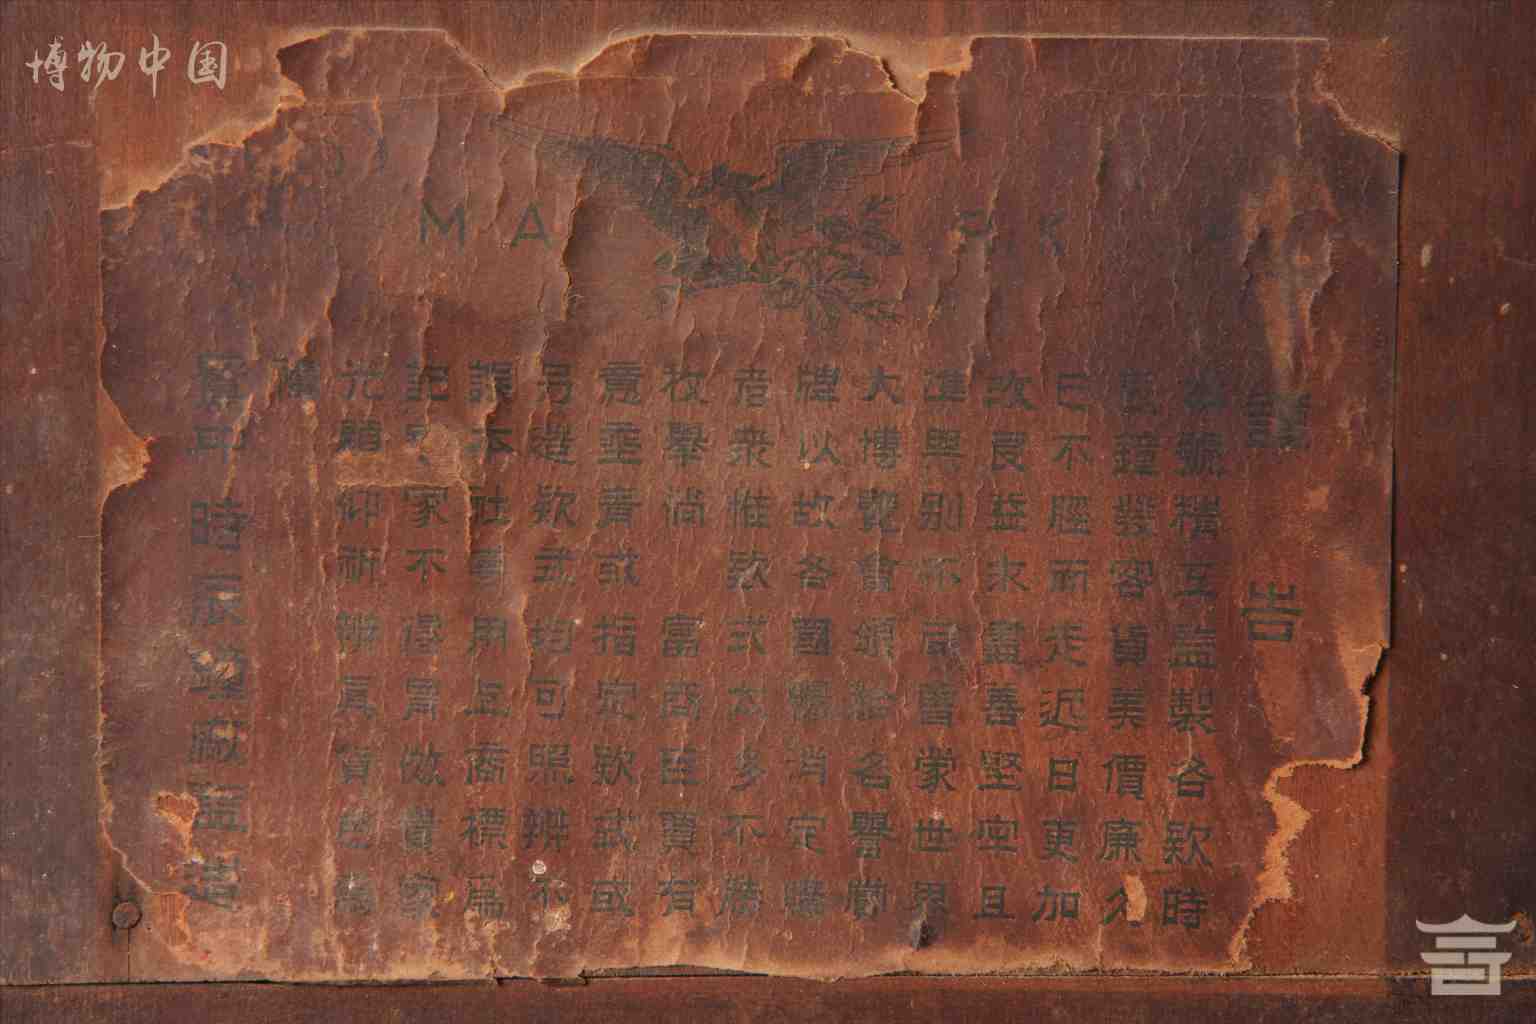 博物中国
MA RK
謹告
本號精工監製各款時
辰鐘發客貨美價廉久
已不脛而走近日更加
改良益求盡善堅牢且
準與別不同曾蒙世界
大博覽會頒給名譽勳
牌以故各國暢消定購
者衆惟款式太多不勝
枚舉尚 富商巨賈有
意垂青或指定款式或
另造款式均可照辦不
誤本社專用上商標爲
記 家不得冒倣貴客
光顧仰祈辨真貨

時辰鐘廠監造